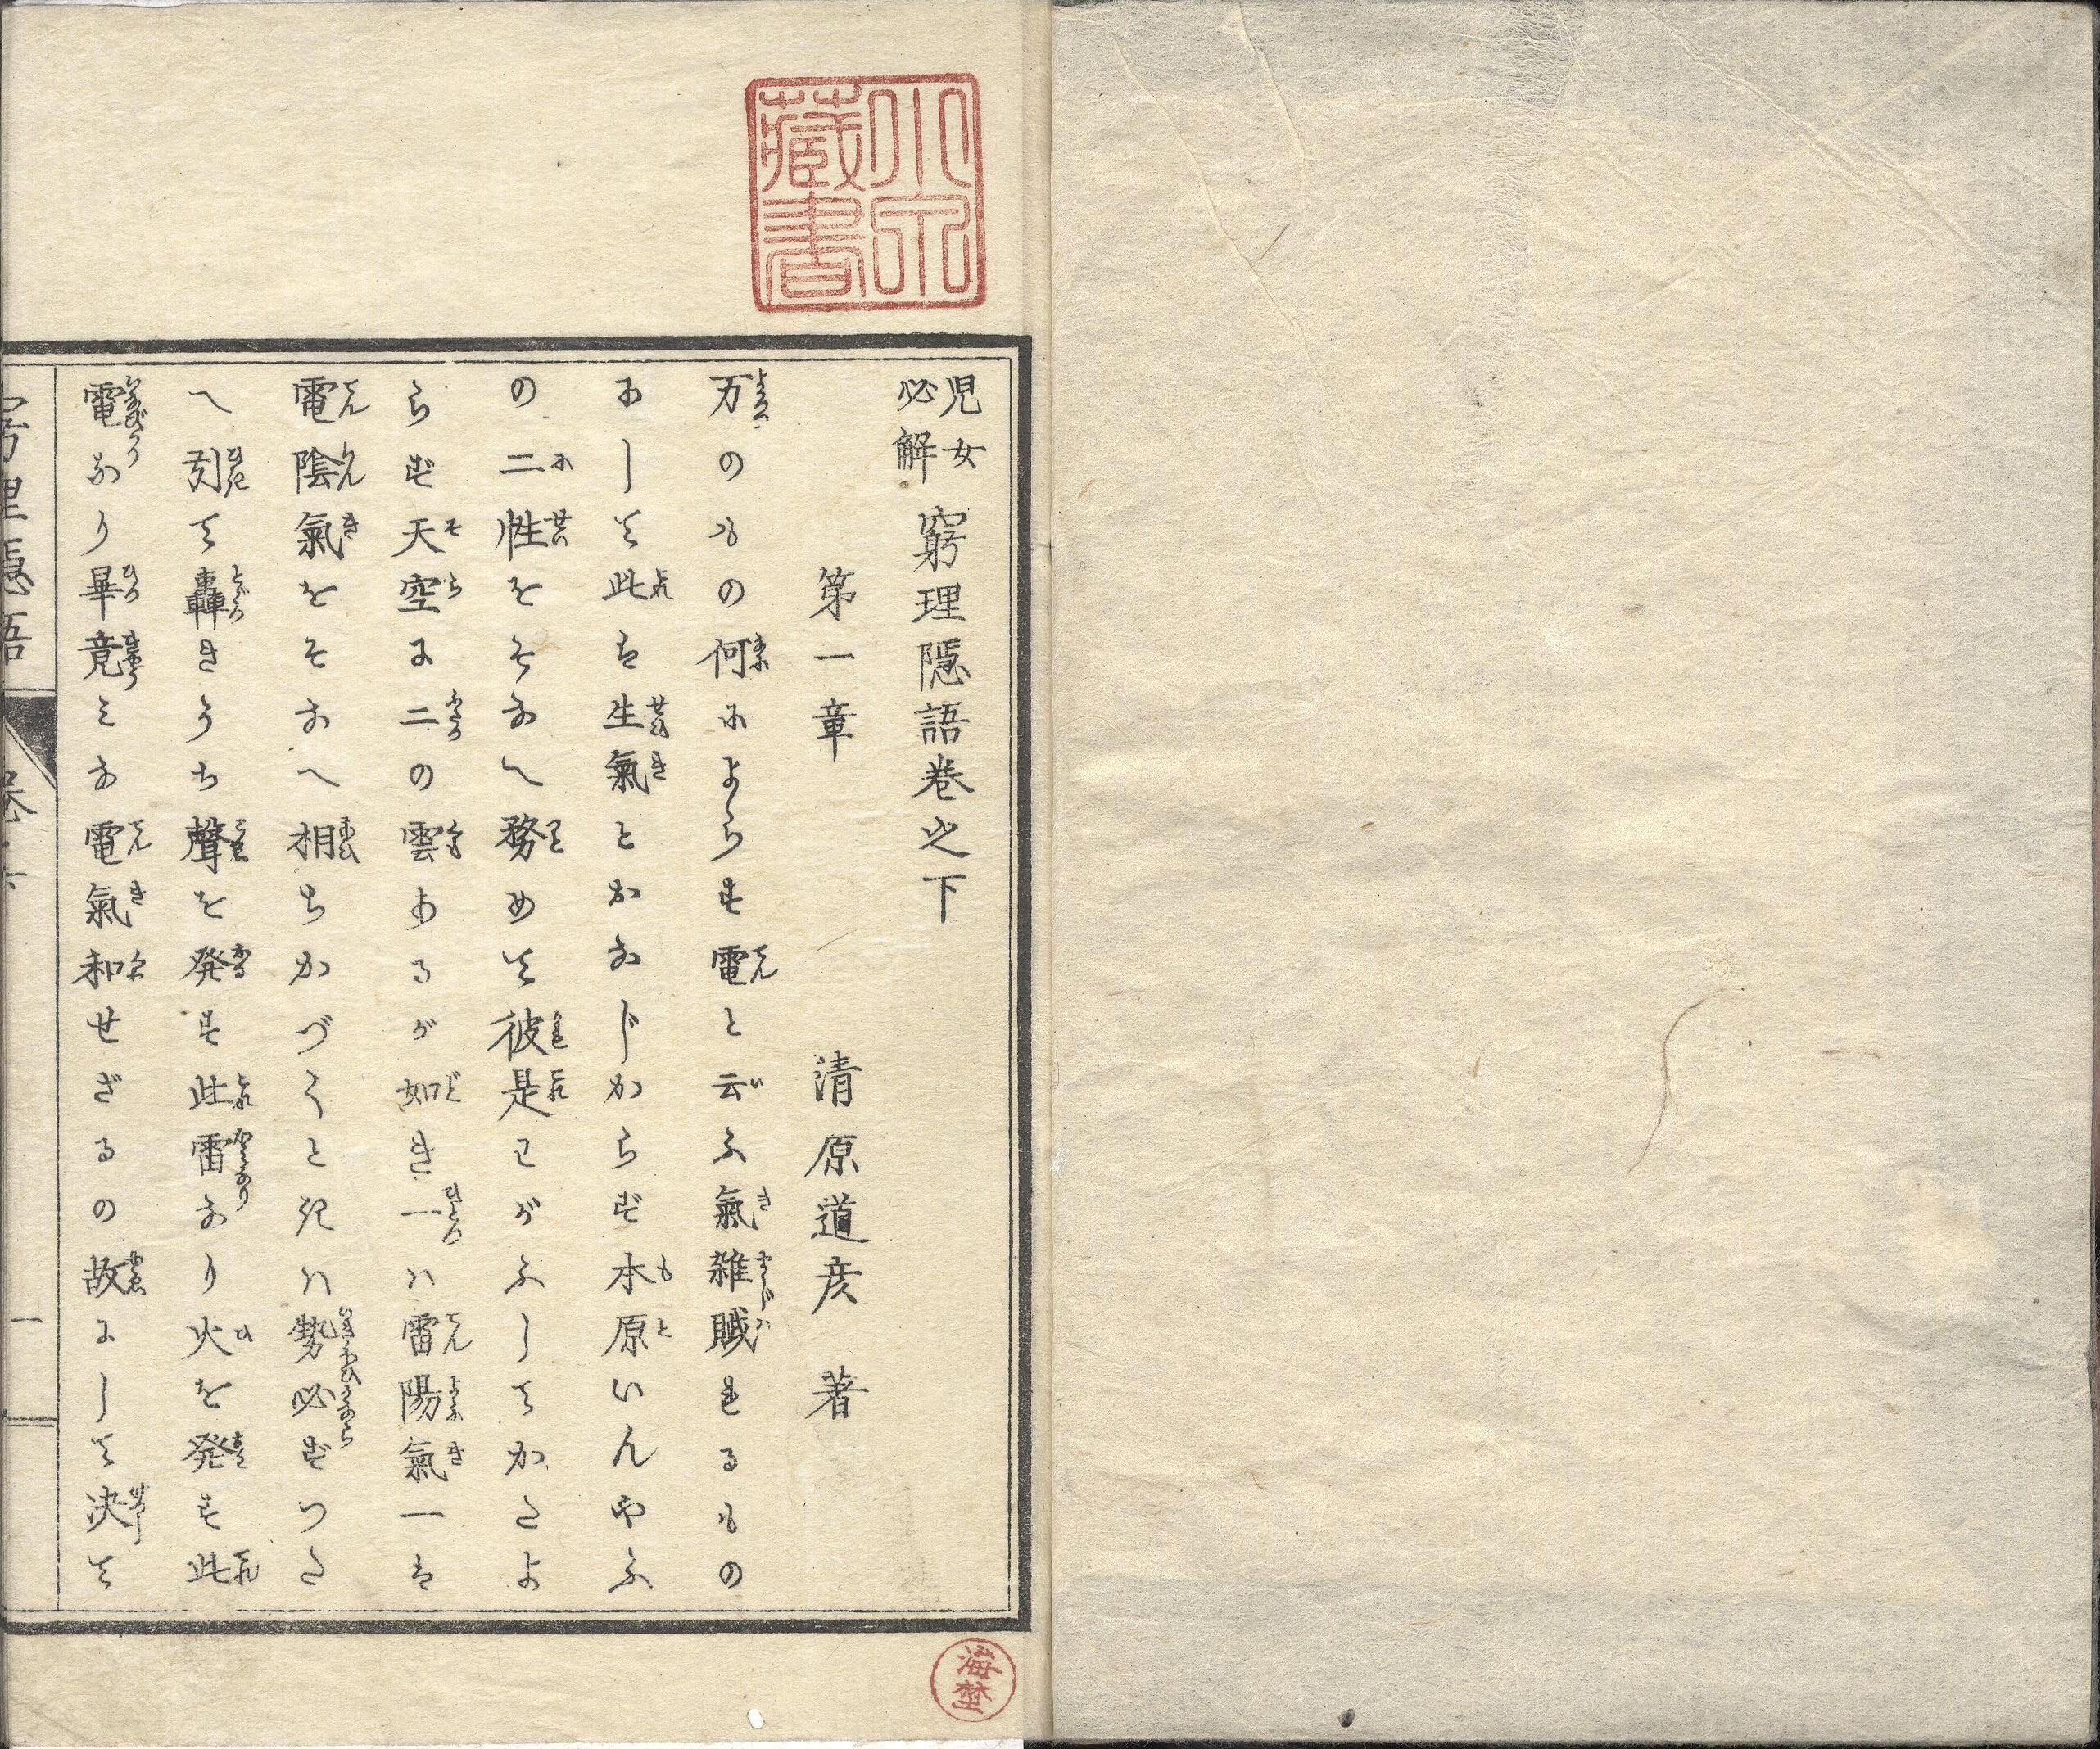 小泉
藏書
児女
必解
窮理隠語巻之下
第一章　清原道彦　著
万のものに何によらず電と云ふ氣雑賦れるもの
なして此は生氣とかおなじからず本原いんやふ
の二性をそなへ務めて彼是わがふしてかさよ
らず天空に二の雲あるが如き一ハ雷陽氣一は
電陰氣をそなへ相ちかづくとき ハ勢必ずつさ
へ引て轟きうち聲を発す此雷なり火を発す此
電なり畢竟みな電氣和せざるの故にして決て
窮理隠語
一
海埜